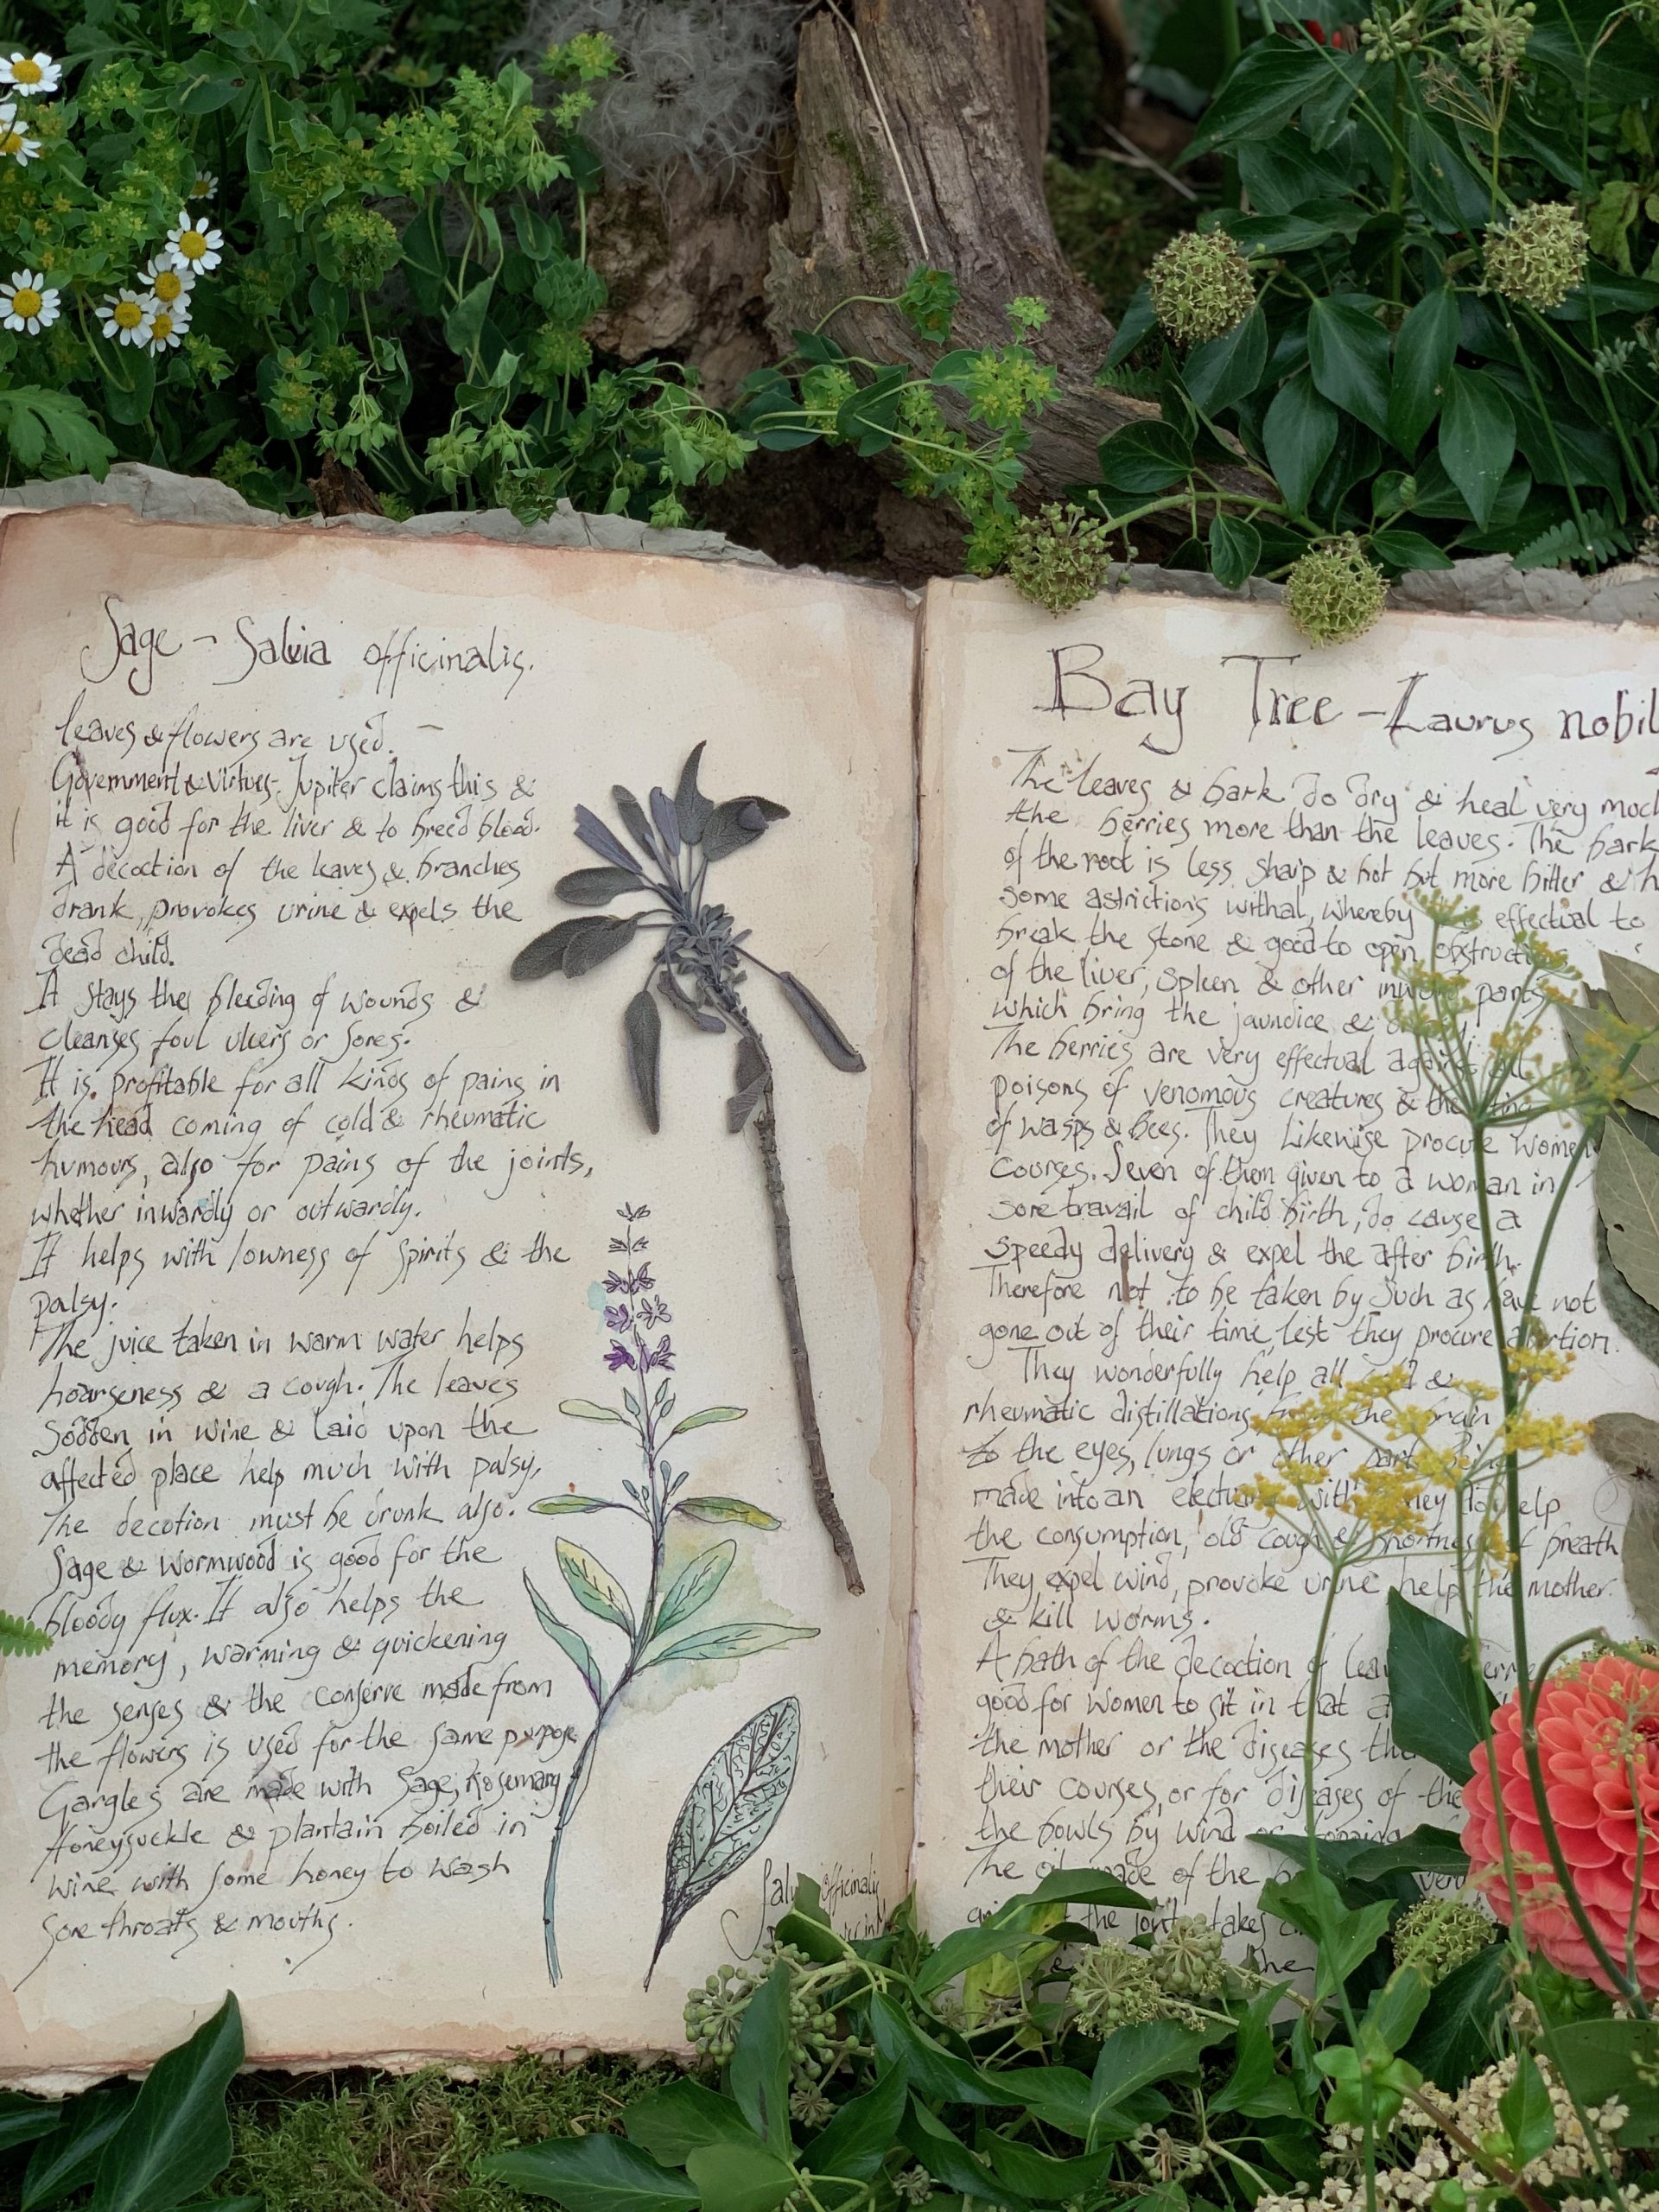 Sage - Salvia officinalis.
leaves & flowers are used.
Government & Virtues - Jupiter claims this &
it is good for the liver & to breed blood.
A decoction of the leaves & branches
drank, provokes urine & expels the
dead child.
It stays the bleeding of wounds &
cleanses foul ulcers or sores.
It is profitable for all kinds of pains in
the head coming of cold & rheumatic
humours, also for pains of the joints,
whether inwardly or outwardly.
It helps with lowness of spirits & the
palsy.
The juice taken in warm water helps
hoarseness & a cough. The leaves
sodden in wine & laid upon the
affected place help much with palsy,
The decotion must be drunk also.
Sage & wormwood is good for the
bloody flux. It also helps the
memory, warming & quickening
the senses & the conserve made from
the flowers is used for the same purpose
Gargles are made with Sage, Rosemary
Honeysuckle & plantain boiled in
wine with some honey to wash
sore throats & mouths.
officinalis
Bay Tree - Laurus nobil
The leaves & bark do dry & heal very much
the berries more than the leaves. The bark
of the root is less sharp & hot but more bitter & h
some astrictions withal, whereby effectual to
break the stone & good to open obstructions
of the liver, spleen & other inward parts
which bring the jaundice &
The berries are very effectual against all
poisons of venomous creatures & the sting
of wasps & bees. They likewise procure women
courses. Seven of them given to a woman in
sore travail of child birth, do cause a
speedy delivery & expel the after birth.
Therefore not to be taken by such as have not
gone out of their time lest they procure abortion.
They wonderfully help all &
rheumatic distillations from the brain
to the eyes, lungs or other part being
made into an electuary with honey to help
the consumption, old cough & shortness of breath
They expel wind, provoke urine help the mother.
& kill worms.
A bath of the decoction of
good for women to sit in that
the mother or the diseases
their courses, or for diseases of the
the bowls by wind or
The oil made of the
the joints takes
& the